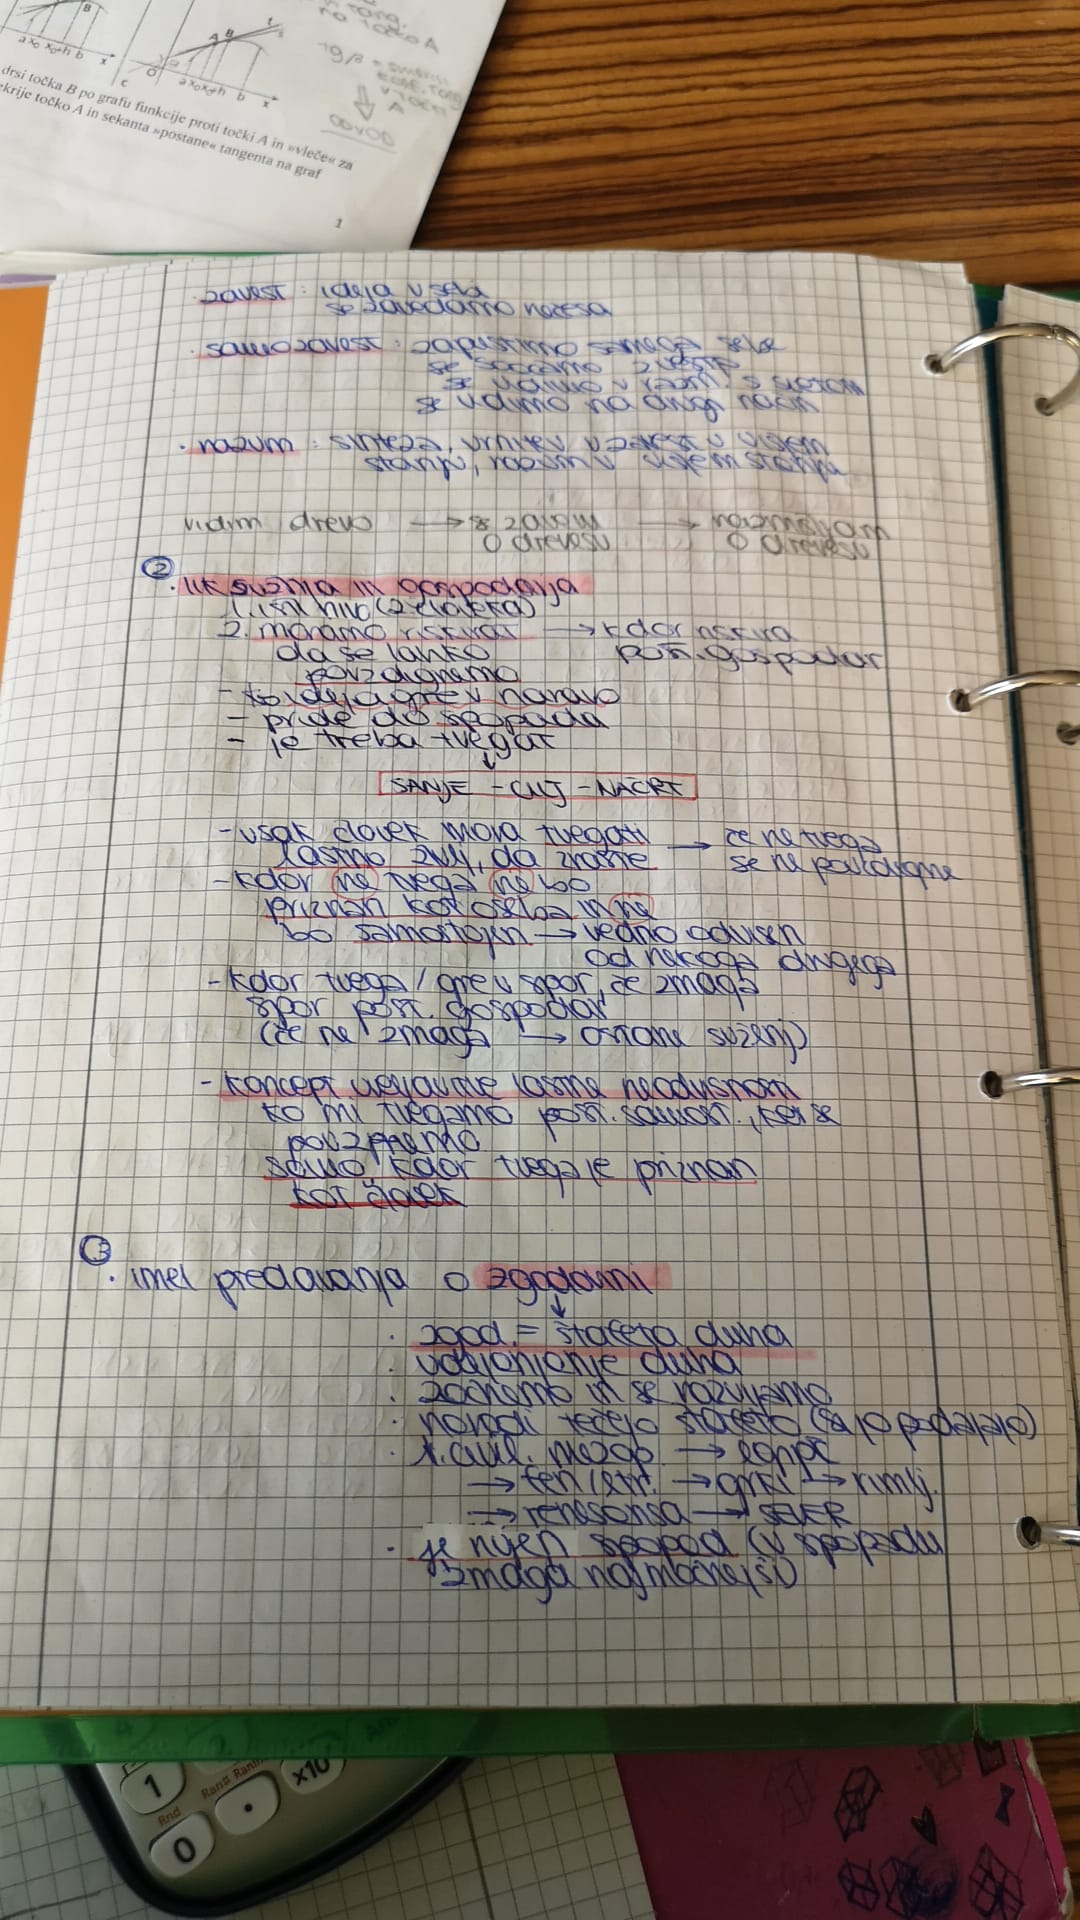 A B
B
t
s
a x₀ x₀+h b x
0 a x₀ x₀+h b x
c
na točko A
tg β = 
v točki
A
odvod
drsi točka B po grafu funkcije proti točki A in »vleče« za
krije točko A in sekanta »postane« tangenta na graf
1
· zavest : ideja v sebi
se zavedamo nečesa
· samozavest : zapustimo samega sebe
se soočamo z
se vidimo v razm. s svetom
se vidimo na drugi način
· razum : sinteza, vrnitev v zavest v višjem
stanju, razum v višjem stanju
vidim drevo → se zavem → razmišljam
o drevesu o drevesu
2
· lik sužnja in gospodarja
2. moramo riskirat → kdor riskira
da se lahko post. gospodar
povzdignemo
- ko ideja gre v naravo
- pride do spopada
- je treba tvegat
↓
SANJE - CILJ - NAČRT
- vsak človek mora tvegati → če ne tvega
lastno življ, da zraste se ne povzdigne
- kdor ne tvega ne bo
priznan kot oseba in ne
bo samostojen → vedno odvisen
od nekoga drugega
- kdor tvega / gre v spor, če zmaga
spor post. gospodar
(če ne zmaga → ostane suženj)
- koncept uveljavitve lastne neodvisnosti
ko mi tvegamo post. samost., ker se
povzpnemo
samo kdor tvega je priznan
kot človek
3
· imel predavanja o zgodovini
↓
· zgod. = štafeta duha
· udejanjenje duha
· začnemo in se razvijamo
· narodi tečejo štafeto (si jo podajajo)
· 1. civil. mezop. → egipt
→ fen. → grki → rimlj.
→ renesansa → SEVER
· je njen spopad (v spopadu
zmaga najmočnejši)
1
0
·
Rnd
Ran# RanInt
x10